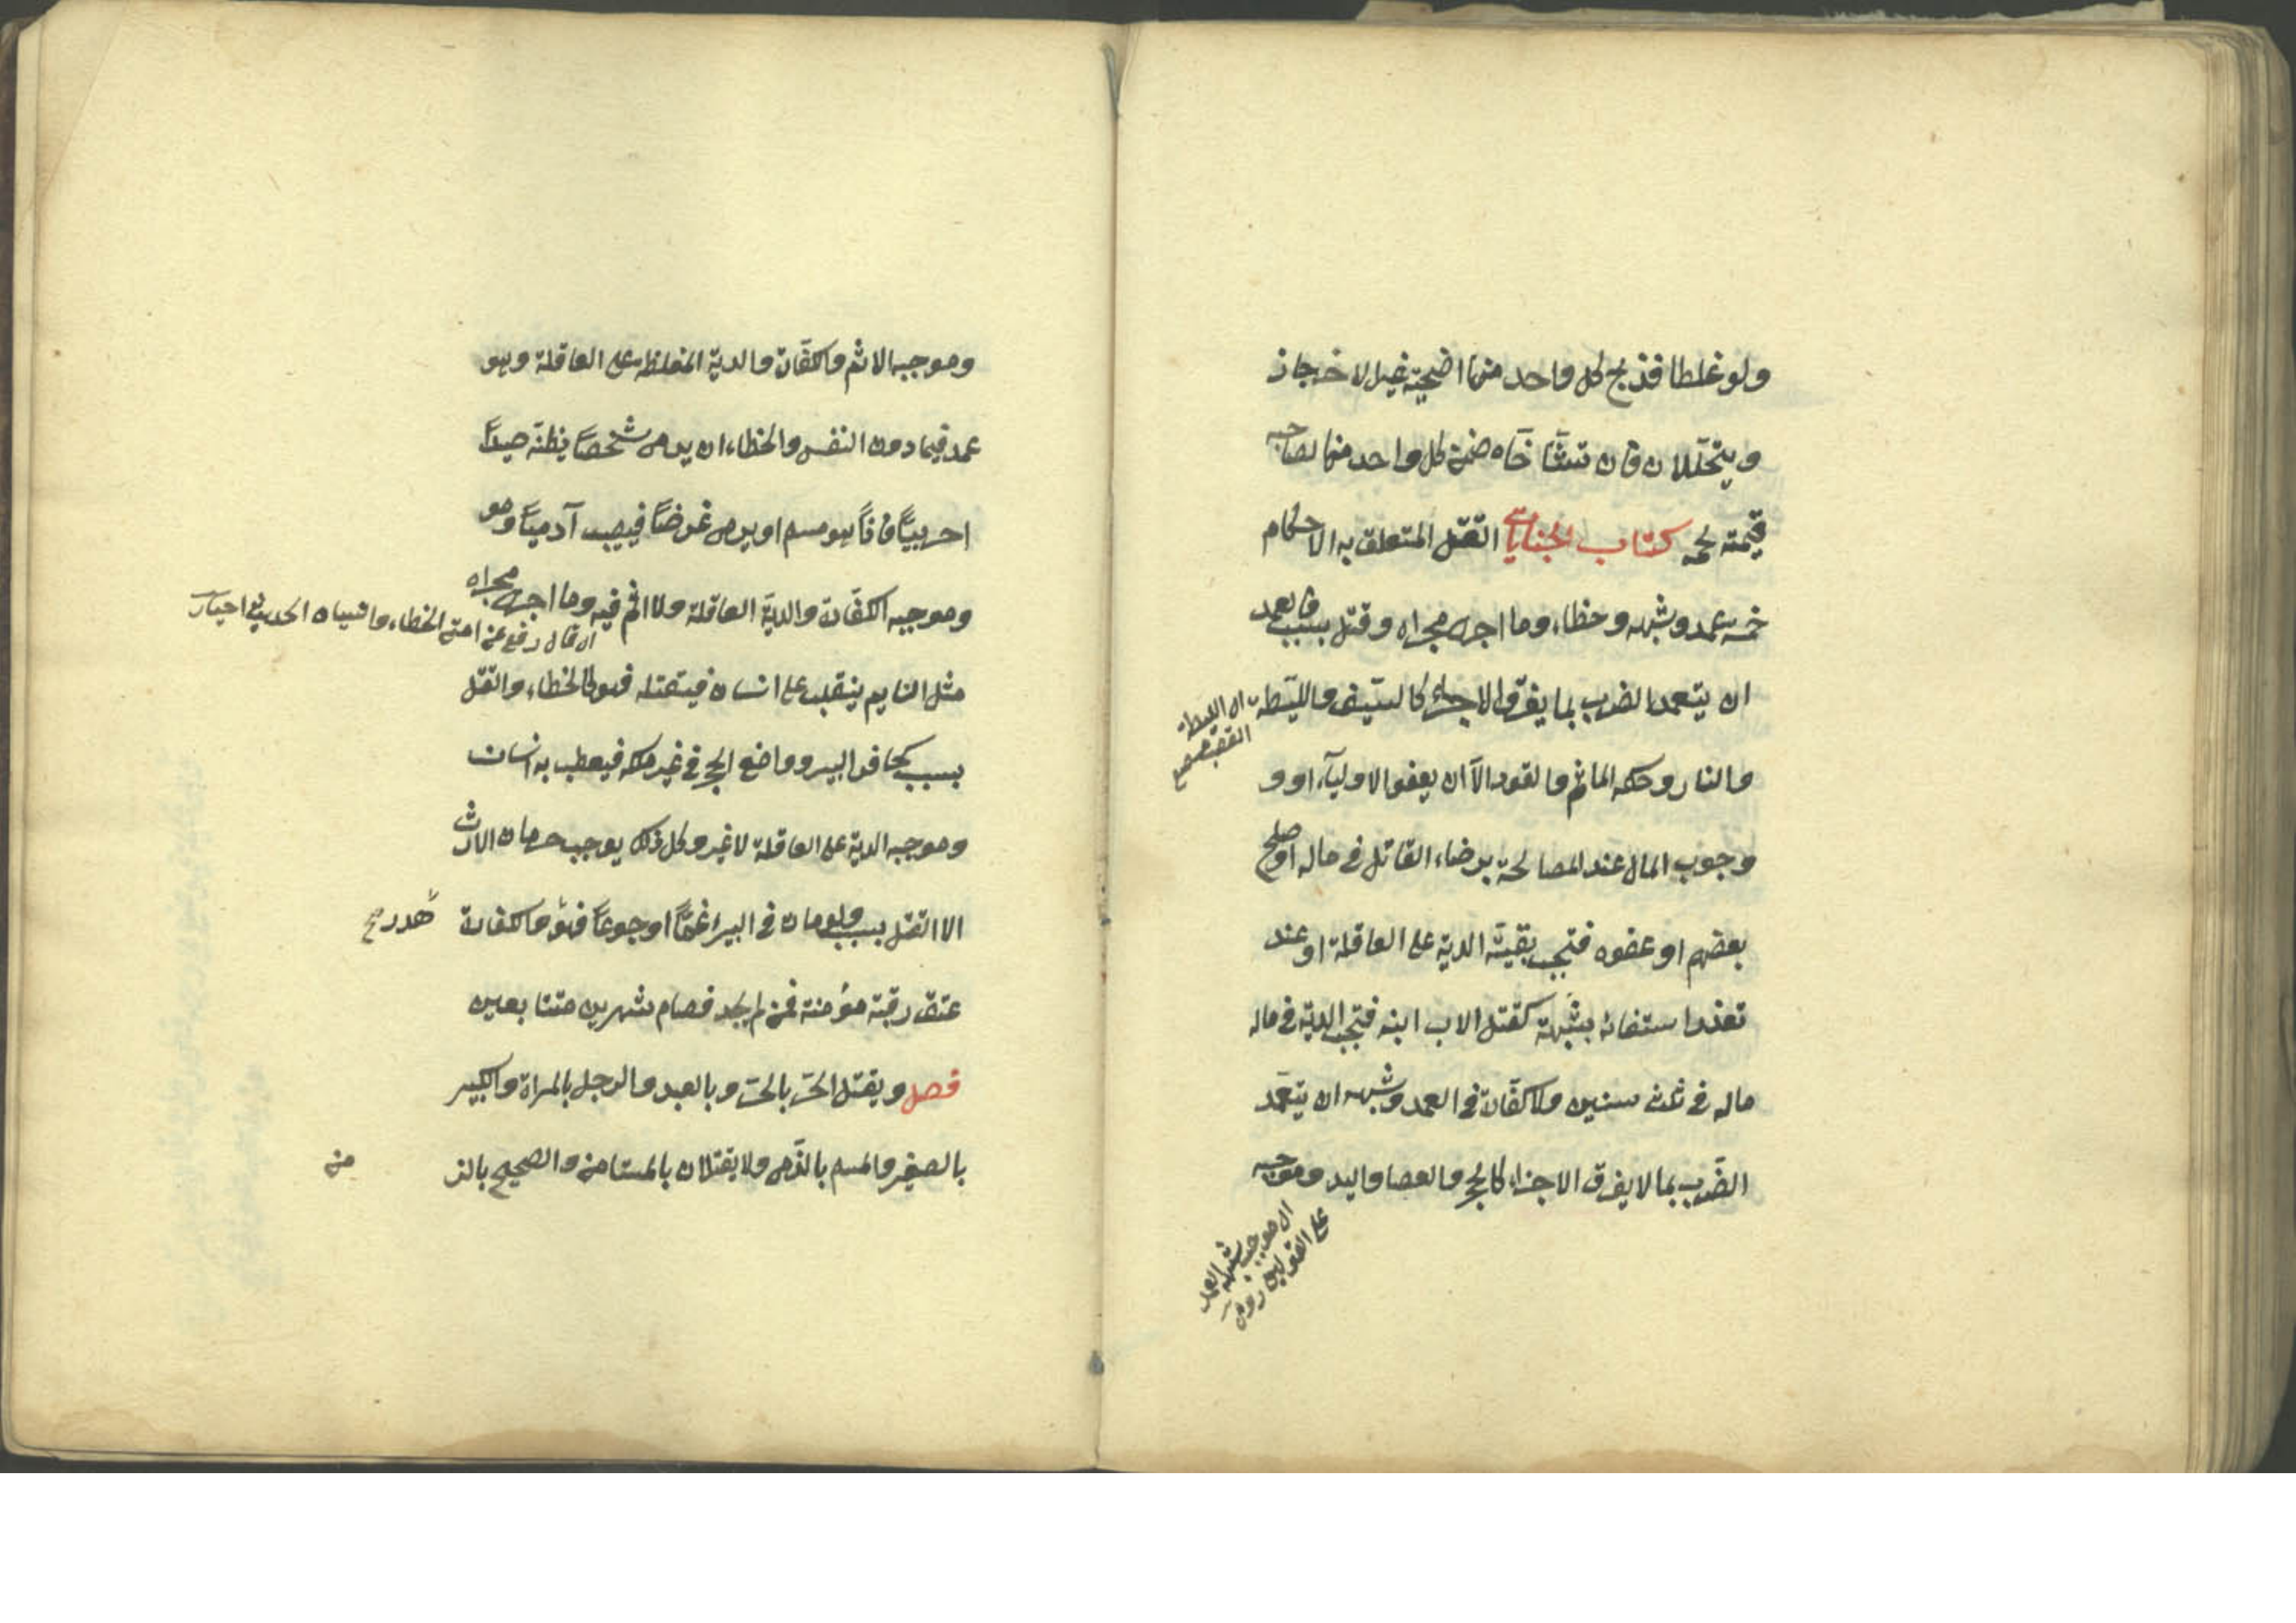 ولو غلطا فذبح كل واحد منهما اضحية غير الاخر جاز
ويتحللان فان تشاحّاه ضمن كل واحد منهما لصاحبه
قيمة لحمه كتاب الجنايات القتل المتعلق به الاحكام
خمسة عمد وشبهه وخطاء وما اجرى مجراه وقتل بسبب فالعمد
ان يتعمد الضرب بما يفرق الاجزاء كالسيف والليطة
اى الليطة
القصب
والنار وحكمه الماثم والقود الاّ ان يعفو الاولياء او و
وجوب المال عند المصالحة برضاء القاتل فى ماله او صلح
بعضهم او عفوه فتجب بقية الدية على العاقلة او عند
تعذر استفائه بشبهة كقتل الاب ابنه فتجب الدية فى ماله
ماله فى ثلث سنين ولا كفارة فى العمد وشبهه ان يتعمد
الضرب بما لا يفرق الاجزاء كالحجر والعصا واليد وموجبه
اى موجب شبه العمد
على القولين
وموجبه الاثم والكفارة والدية المغلظة على العاقلة وهو
عمد فيما دون النفس والخطاء ان يرمى شخصاً يظنه صيداً
احربياً فاذا هو مسلم او يرمى غرضاً فيصيب آدمياً وهو
وموجبه الكفارة والدية العاقلة ولا اثم فيه وما اجرى مجراه
اى قال رفع عن امتى الخطاء والنسيان الحديث
مثل النايم ينقلب على انسان فيقتله فهو كالخطاء والقتل
بسبب كحافر البير وواضع الحجر فى غير ملكه فيعطب به انسان
وموجبه الدية على العاقلة لا غير وكل ذلك يوجب حرمان الارث
الا القتل بسبب ولو مات فى البير غماً او جوعاً فهو والكفارة
هدر صح
عتق رقبة مؤمنة فمن لم يجد فصام شهرين متتابعين
فصل ويقتل الحر بالحر وبالعبد والرجل بالمراة والكبير
بالصغير والمسلم بالذمى ولا يقتلان بالمستامن والصحيح بالز
من